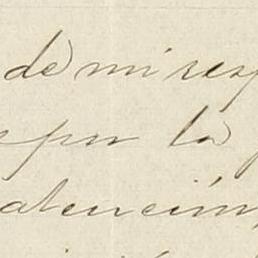 de mi resp
por la
atencion,